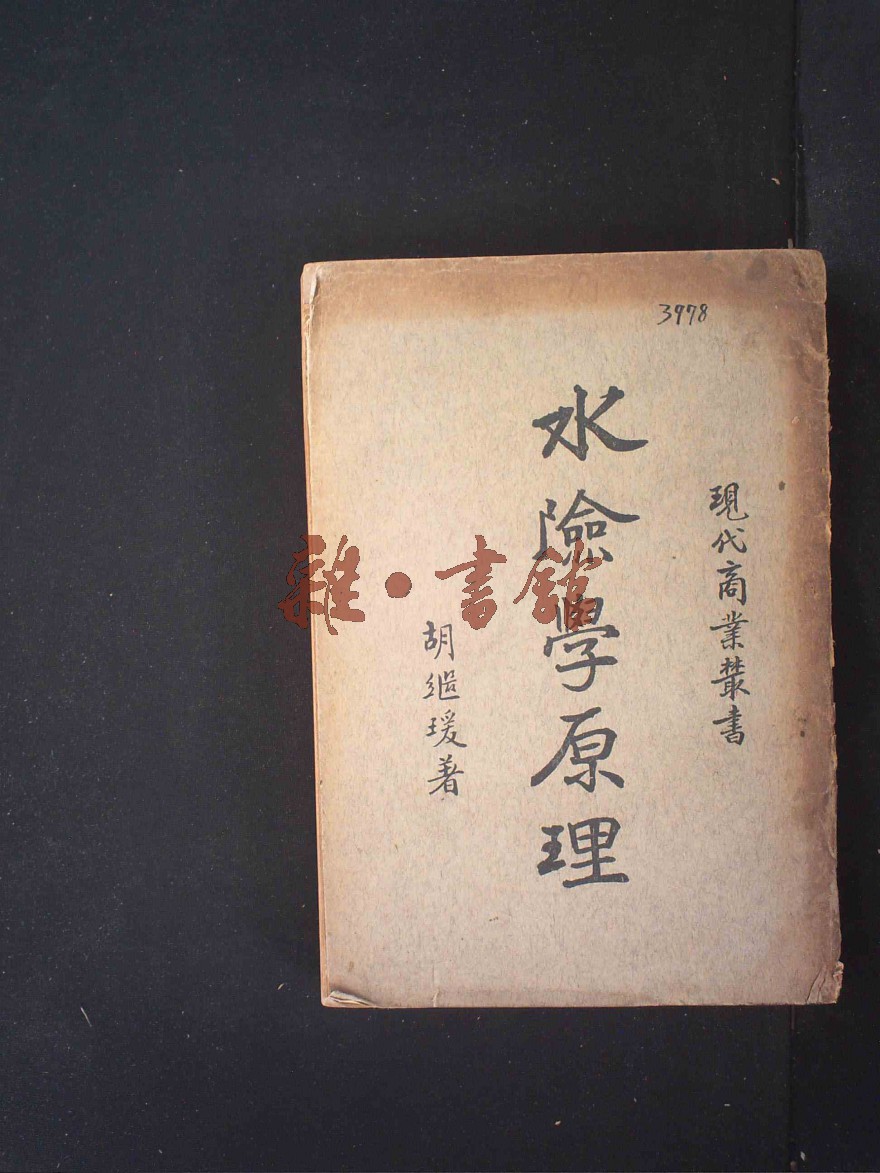 3978
現代商業叢書
水險學原理
胡継瑗著
雜·書館